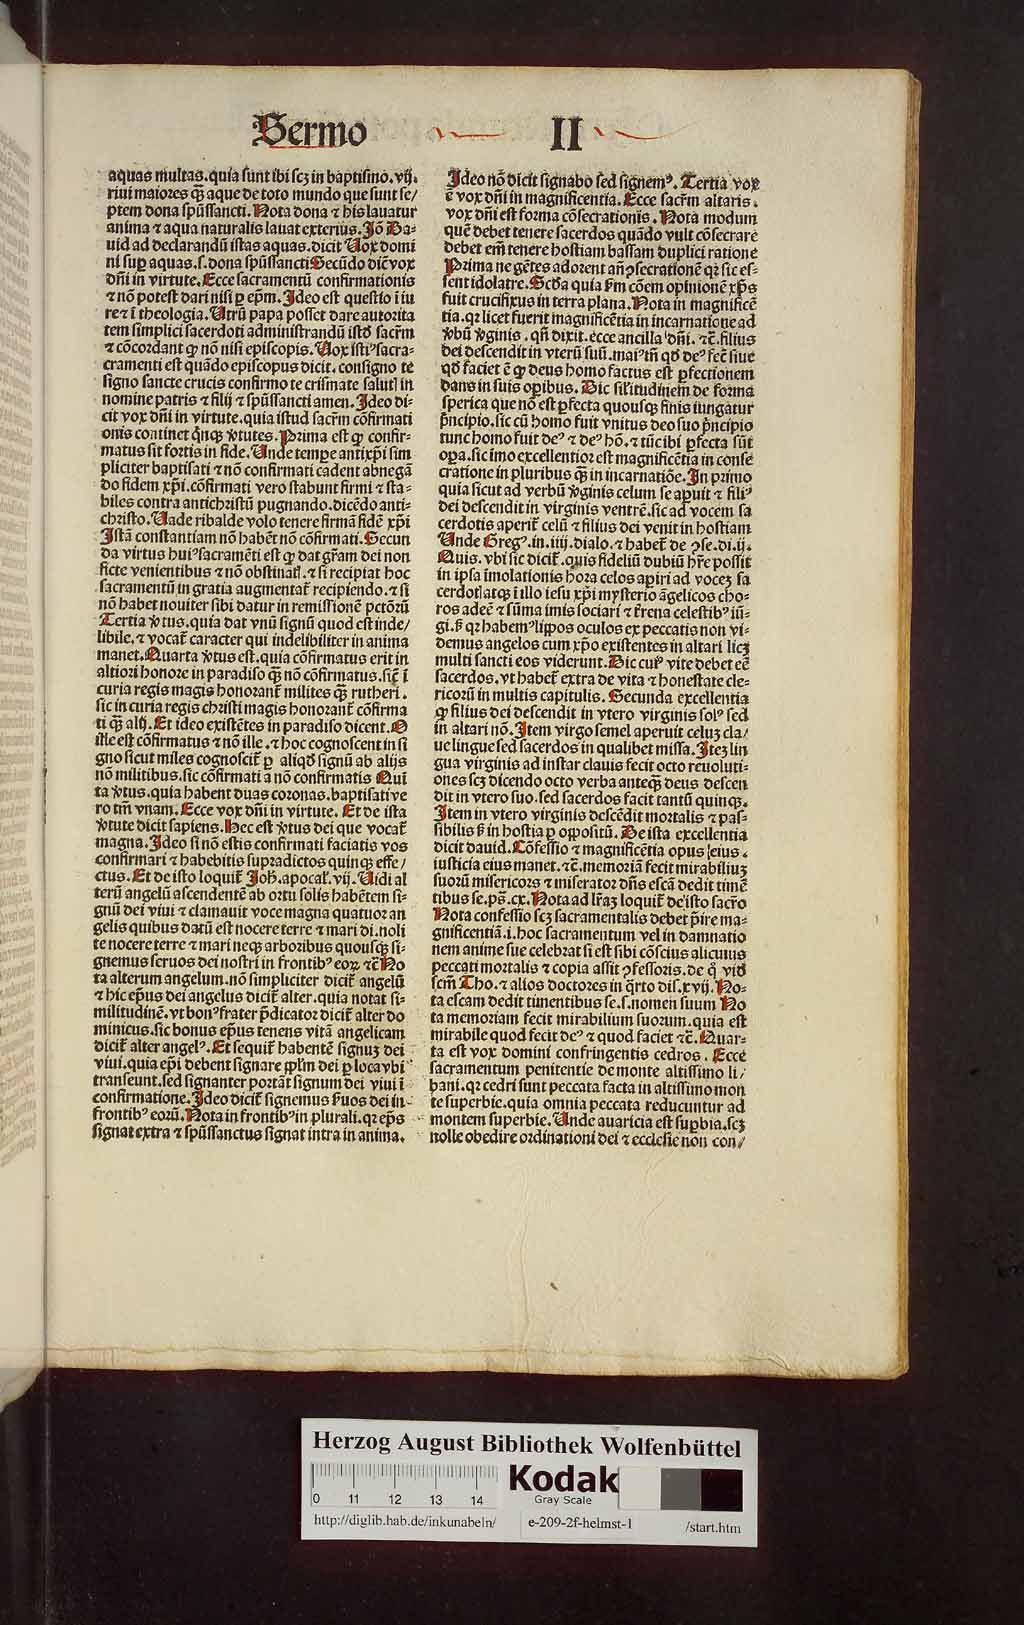 Sermo II
aquas multas.quia sunt ibi scꝫ in baptismo.vij.
riui maiores qꝫ̃ aque de toto mundo que sunt se/
ptem dona spũssancti.Nota dona ⁊ his lauatur
anima ⁊ aqua naturalis lauat exterius.Iõ Da-
uid ad declarandũ istas aquas.dicit Uox domi
ni suꝑ aquas.s.dona spũssancti Secũdo dic̃ vox
dñi in virtute.Ecce sacramentũ confirmationis
⁊ nõ potest dari nisi ꝑ ep̃m.Ideo est questio ĩ iu
re ⁊ ĩ theologia.Utrũ papa posset dare autorita
tem simplici sacerdoti administrandũ istð sacr̃m
⁊ cõcordant ꝙ nõ nisi episcopis.Uox istiꝰ sacra-
cramenti est quãdo episcopus dicit.consigno te
signo sancte crucis confirmo te crismate salutꝭ in
nomine patris ⁊ filij ⁊ spũssancti amen.Ideo di-
cit vox dñi in virtute.quia istud sacr̃m cõfirmati
onis continet q̃nqꝫ ꝟtutes.Prima est ꝙ confir-
matus sit fortis in fide.Unde tempe antixp̃i sim
pliciter baptisati ⁊ nõ confirmati cadent abnegã
do fidem xp̃i.cõfirmati vero stabunt firmi ⁊ sta-
biles contra antichristũ pugnando.dicẽdo anti-
christo.Uade ribalde volo tenere firmã fidẽ xp̃i
Istã constantiam nõ habẽt nõ cõfirmati.Secun
da virtus huiꝰ sacramẽti est ꝙ dat gr̃am dei non
ficte venientibus ⁊ nõ obstinatꝭ.⁊ si recipiat hoc
sacramentũ in gratia augmentat̃ recipiendo.⁊ si
nõ habet nouiter sibi datur in remissionẽ pctõrũ
Tertia ꝟtus.quia dat vnũ signũ quod est inde/
libile.⁊ vocat̃ caracter qui indelibiliter in anima
manet.Quarta ꝟtus est.quia cõfirmatus erit in
altiori honore in paradiso qꝫ̃ nõ cõfirmatus.sic̃ ĩ
curia regis magis honorant̃ milites qꝫ̃ rutheri.
sic in curia regis christi magis honorant̃ cõfirma
ti qꝫ̃ alij.Et ideo existẽtes in paradiso dicent.O
ille est cõfirmatus ⁊ nõ ille.⁊ hoc cognoscent in si
gno sicut miles cognoscit̃ ꝑ aliqð signũ ab alijs
nõ militibus.sic cõfirmati a nõ confirmatis Quĩ
ta ꝟtus.quia habent duas coronas.baptisati ve
ro tm̃ vnam.Ecce vox dñi in virtute.Et de ista
ꝟtute dicit sapiens.Hec est ꝟtus dei que vocat̃
magna.Ideo si nõ estis confirmati faciatis vos
confirmari ⁊ habebitis supradictos quinqꝫ effe/
ctus.Et de isto loquit̃ Joh̃.apocal̃.vij.Uidi al
terũ angelũ ascendentẽ ab ortu solis habẽtem si-
gnũ dei viui ⁊ clamauit voce magna quatuor an
gelis quibus datũ est nocere terre ⁊ mari di.noli
te nocere terre ⁊ mari neqꝫ arboribus quousqꝫ si-
gnemus seruos dei nostri in frontibꝰ eoꝝ ⁊c̃ No
ta alterum angelum.nõ simpliciter dicit̃ angelũ
⁊ hic ep̃us dei angelus dicit̃ alter.quia notat si-
militudinẽ.vt bonꝰ frater p̃dicator dicit̃ alter do
minicus.sic bonus ep̃us tenens vitã angelicam
dicit̃ alter angelꝰ.Et sequit̃ habentẽ signuꝫ dei
viui.quia ep̃i debent signare ppl̃m dei ꝑ loca vbi
transeunt.sed signanter portãt signum dei viui ĩ
confirmatione.Ideo dicit̃ signemus ẜuos dei in
frontibꝰ eorũ.Nota in frontibꝰ in plurali.qꝛ ep̃s
signat extra ⁊ spũssanctus signat intra in anima.
Ideo nõ dicit signabo sed signemꝰ.Tertia vox
ẽ vox dñi in magnificentia.Ecce sacr̃m altaris.
vox dñi est forma cõsecrationis.Nota modum
quẽ debet tenere sacerdos quãdo vult cõsecrare
debet em̃ tenere hostiam bassam duplici ratione
Prima ne gẽtes adorent añ ꝯsecrationẽ qꝛ sic es-
sent idolatre.Scða quia ẜm cõem opinionẽ xp̃s
fuit crucifixus in terra plana.Nota in magnificẽ
tia.qꝛ licet fuerit magnificẽtia in incarnatione ad
ꝟbũ ꝟginis.qñ dixit.ecce ancilla dñi.⁊c̃.filius
dei descendit in vterũ suũ.maiꝰ tñ qð deꝰ fec̃ siue
qð faciet ẽ ꝙ deus homo factus est ꝑfectionem
dans in suis oꝑibus.Dic sil̃itudinem de forma
sperica que nõ est ꝑfecta quousqꝫ finis iungatur
p̃ncipio.sic cũ homo fuit vnitus deo suo p̃ncipio
tunc homo fuit deꝰ ⁊ deꝰ hõ.⁊ tũc ibi ꝑfecta sũt
oꝑa.sic imo excellentior est magnificẽtia in conse
cratione in pluribus qꝫ̃ in incarnatiõe.In primo
quia sicut ad verbũ ꝟginis celum se aꝑuit ⁊ filiꝰ
dei descendit in virginis ventrẽ.sic ad vocem sa
cerdotis aperit̃ celũ ⁊ filius dei venit in hostiam
Unde Gregꝰ.in.iiij.dialo.⁊ habet̃ de ꝯse.di.ij.
Quis.vbi sic dicit̃.quis fideliũ dubiũ hr̃e possit
in ipsa imolationis hora celos aꝑiri ad voceꝫ sa
cerdotꝭ atqꝫ ĩ illo iesu xp̃i mysterio ãgelicos cho-
ros adeẽ ⁊ sũma imis sociari ⁊ t̃rena celestibꝰ iũ-
gi.ẜ qꝛ habemꝰ lippos oculos ex peccatis non vi-
demus angelos cum xp̃o existentes in altari licꝫ
multi sancti eos viderunt.Dic curꝰ vite debet eẽ
sacerdos.vt habet̃ extra de vita ⁊ honestate cle-
ricorũ in multis capitulis.Secunda excellentia
ꝙ filius dei descendit in vtero virginis solꝰ sed
in altari nõ.Item virgo semel aperuit celuꝫ cla/
ue lingue sed sacerdos in qualibet missa.Iteꝫ lin
gua virginis ad instar clauis fecit octo reuoluti-
ones scꝫ dicendo octo verba anteqꝫ̃ deus descen
dit in vtero suo.sed sacerdos facit tantũ quinqꝫ.
Item in vtero virginis descẽdit mortalis ⁊ pas-
sibilis ẜ in hostia ꝑ oppositũ.De ista excellentia
dicit dauid.Cõfessio ⁊ magnificẽtia opus eius.
iusticia eius manet.⁊c̃.memoriã fecit mirabiliuꝫ
suorũ misericors ⁊ miserator dñs escã dedit timẽ
tibus se.ps̃.cx.Nota ad lr̃aꝫ loquit̃ de isto sacr̃o
Nota confessio scꝫ sacramentalis debet p̃ire ma-
gnificentiã.i.hoc sacramentum vel in damnatio
nem anime sue celebrat si est sibi cõscius alicuius
peccati mortalis ⁊ copia assit ꝯfessoris.de q̃ vid̃
scm̃ Tho.⁊ alios doctores in q̃rto dis.xvij.No-
ta escam dedit timentibus se.s.nomen suum No
ta memoriam fecit mirabilium suorum.quia est
mirabile quod fecit deꝰ ⁊ quod faciet ⁊c̃.Quar-
ta est vox domini confringentis cedros.Ecce
sacramentum penitentie de monte altissimo li/
bani.qꝛ cedri sunt peccata facta in altissimo mon
te superbie.quia omnia peccata reducuntur ad
montem superbie.Unde auaricia est suꝑbia.scꝫ
nolle obedire ordinationi dei ⁊ ecclesie non con/
Herzog August Bibliothek Wolfenbüttel
Kodak
Gray Scale
0 11 12 13 14
http://diglib.hab.de/inkunabeln/ e-209-2f-helmst-1 /start.htm